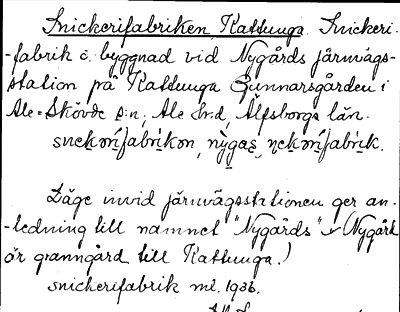 Snickerifabriken, Kattunga. Snickeri-
-fabrik o. byggnad vid Nygårds järnvägs-
station på Kattunga Gunnarsgården i
Ale-Skövde s:n, Ale Hrd, Älfsborgs län.
snekərifabrikən, nygas,
Läge invid järnvägsstationen ger an-
-ledning till namnet "Nygårds" (Nygård
är granngård till Kattunga.)
snickerifabrik ml. 1936.